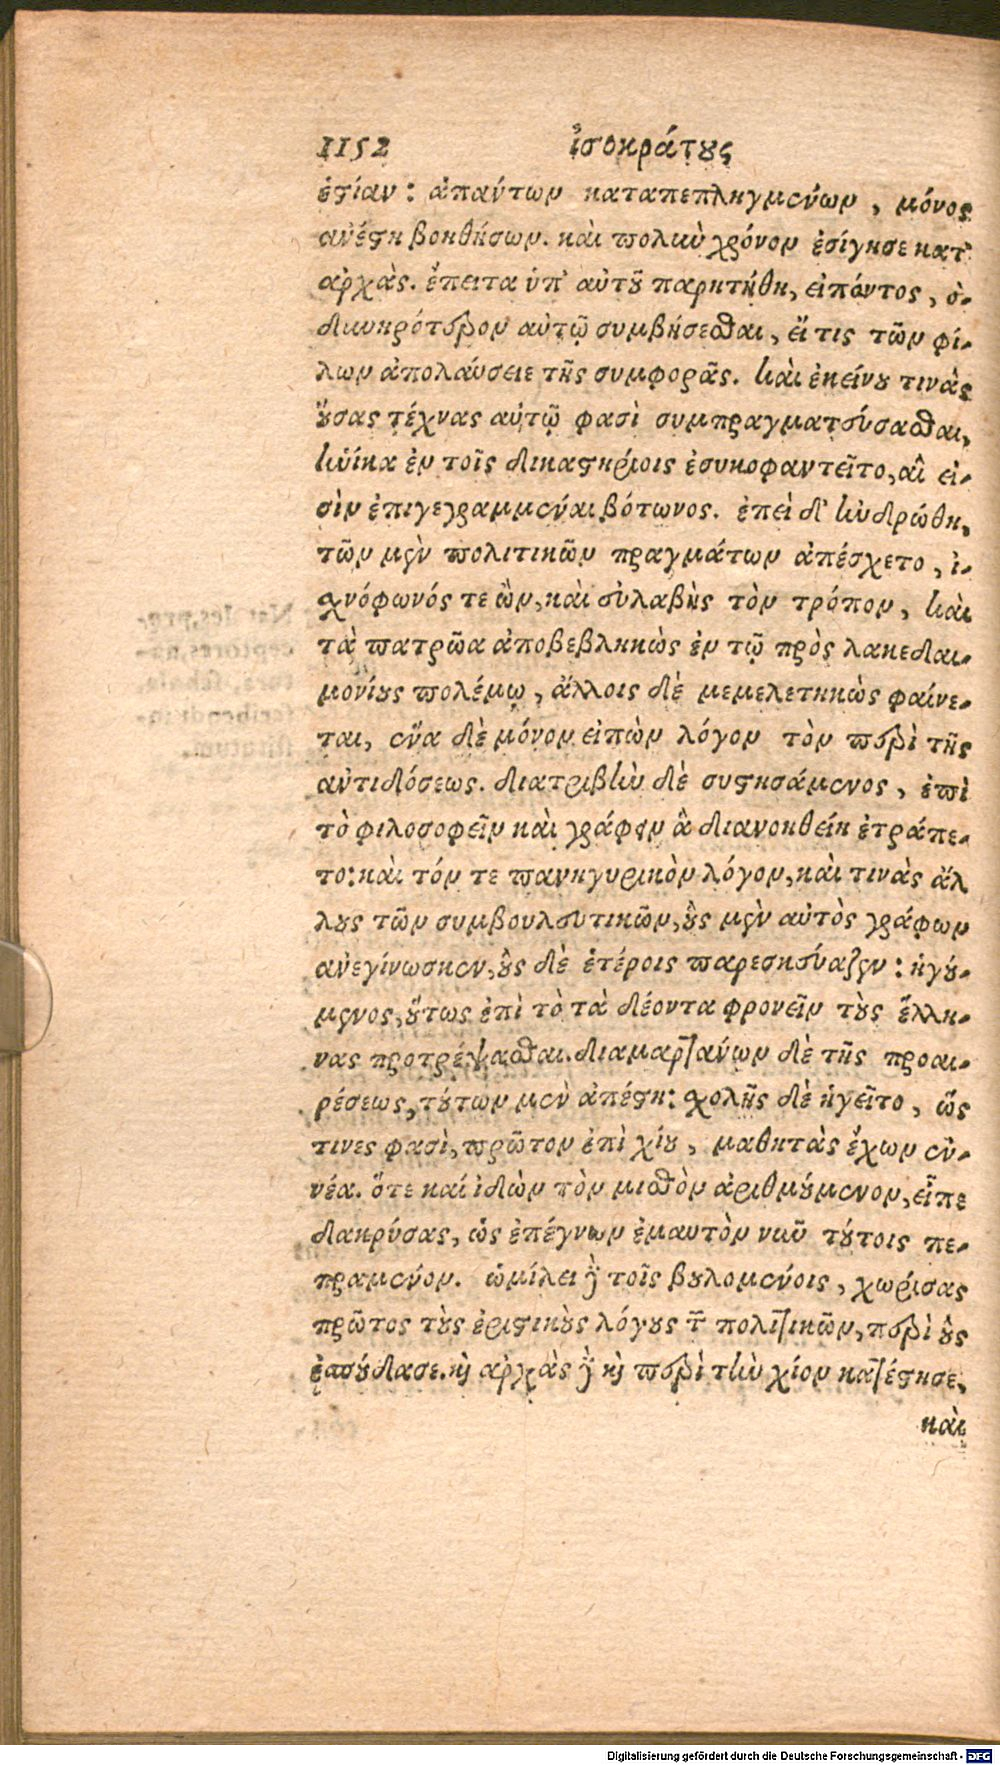 1152 ἰσοκράτους
ἑστίαν: ἁπάντων καταπεπληγμένων, μόνος
ἀνέστη βοηθήσων. καὶ πολὺν χρόνον ἐσίγησε κατ'
ἀρχάς. ἔπειτα ὑπ' αὐτοῦ παρητήθη, εἰπόντος, ὀ-
δυνηρότερον αὐτῷ συμβήσεσθαι, εἴ τις τῶν φί-
λων ἀπολαύσειε τῆς συμφορᾶς. καὶ ἐκείνου τινὰς
οὔσας τέχνας αὐτῷ φασὶ συμπραγματεύσασθαι,
ἡνίκα ἐν τοῖς δικαστηρίοις ἐσυκοφαντεῖτο, αἳ εἰ-
σὶν ἐπιγεγραμμέναι βότωνος. ἐπεὶ δ' ἠνδρώθη,
τῶν μὲν πολιτικῶν πραγμάτων ἀπέσχετο, ἰ-
σχνόφωνός τε ὢν, καὶ εὐλαβὴς τὸν τρόπον, καὶ
τὰ πατρῶα ἀποβεβληκὼς ἐν τῷ πρὸς λακεδαι-
μονίους πολέμῳ, ἄλλοις δὲ μεμελετηκὼς φαίνε-
ται, ἕνα δὲ μόνον εἰπὼν λόγον τὸν περὶ τῆς
ἀντιδόσεως. διατριβὴν δὲ συστησάμενος, ἐπὶ
τὸ φιλοσοφεῖν καὶ γράφειν ἃ διανοηθείη ἐτράπε-
το: καὶ τόν τε πανηγυρικὸν λόγον, καὶ τινὰς ἄλ
λους τῶν συμβουλευτικῶν, οὓς μὲν αὐτὸς γράφων
ἀνεγίνωσκεν, οὓς δὲ ἑτέροις παρεσκεύαζεν: ἡγού-
μενος, οὕτως ἐπὶ τὸ τὰ δέοντα φρονεῖν τοὺς ἕλλη-
νας προτρέψασθαι. διαμαρτάνων δὲ τῆς προαι-
ρέσεως, τούτων μὲν ἀπέστη: σχολῆς δὲ ἡγεῖτο, ὥς
τινες φασὶ, πρῶτον ἐπὶ χίου, μαθητὰς ἔχων ἐν-
νέα. ὅτε καί ἰδὼν τὸν μισθὸν ἀριθμούμενον, εἶπε
δακρύσας, ὡς ἐπέγνων ἐμαυτὸν νῦν τούτοις πε-
πραμένον. ὡμίλει δὲ τοῖς βουλομένοις, χωρίσας
πρῶτος τοὺς ἐριστικοὺς λόγους τῶν πολιτικῶν, περὶ οὓς
ἐσπούδασε. καὶ ἀρχὰς δὲ καὶ περὶ τὴν χίον κατέστησε,
καὶ
Digitalisierung gefördert durch die Deutsche Forschungsgemeinschaft - DFG